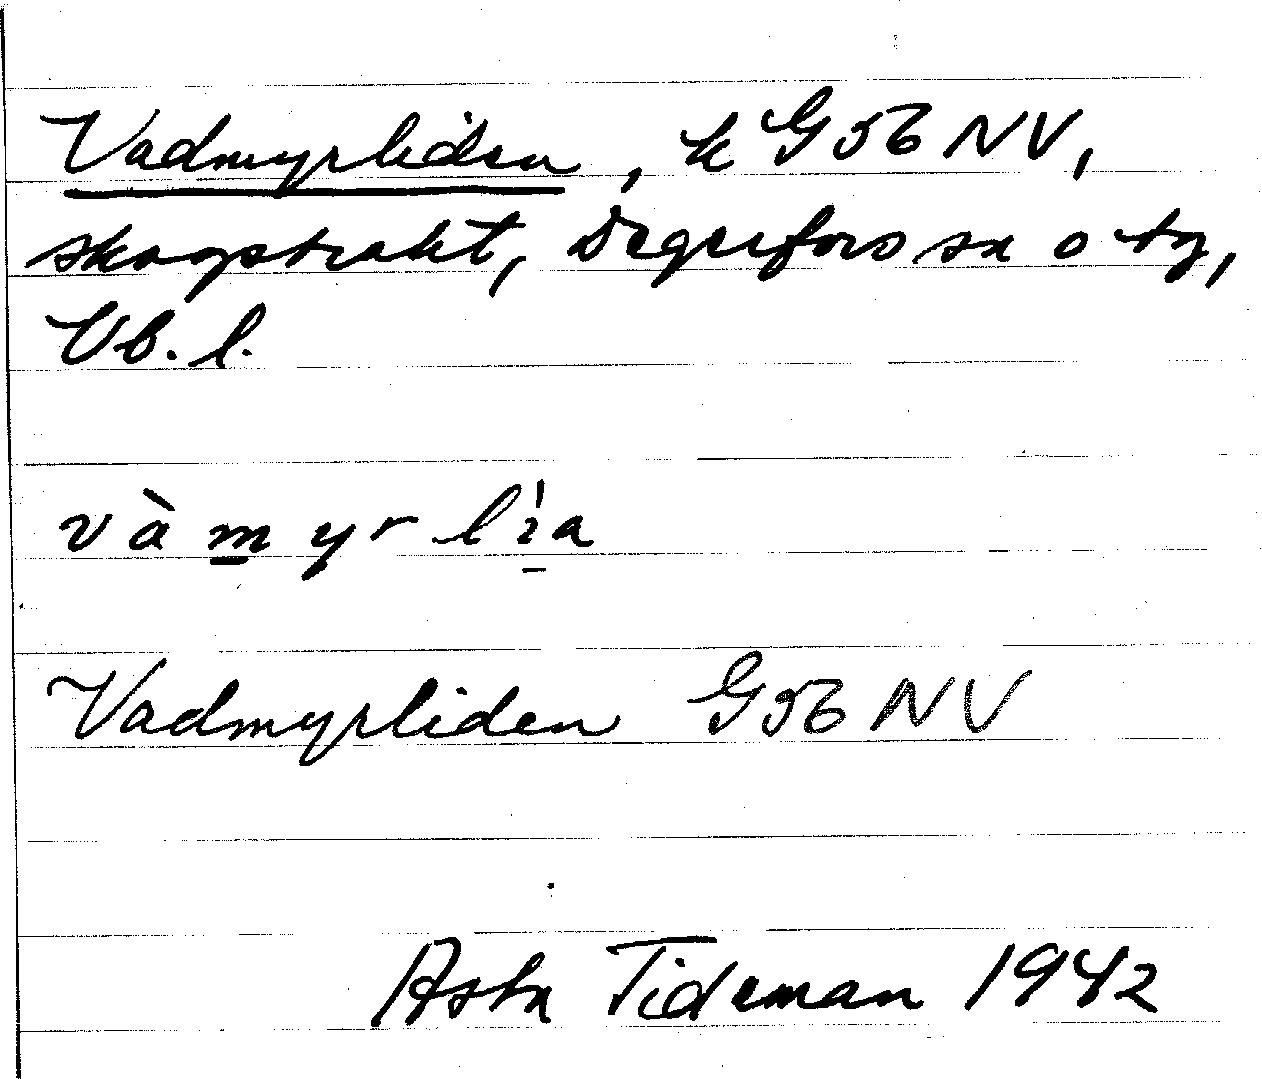 Vadmyrliden, k G 56 NV,
skogstrakt, Degerfors sn o tg,
Vb. l.
vàmyrlìa
Vadmyrliden G 56 NV
Asta Tideman 1942